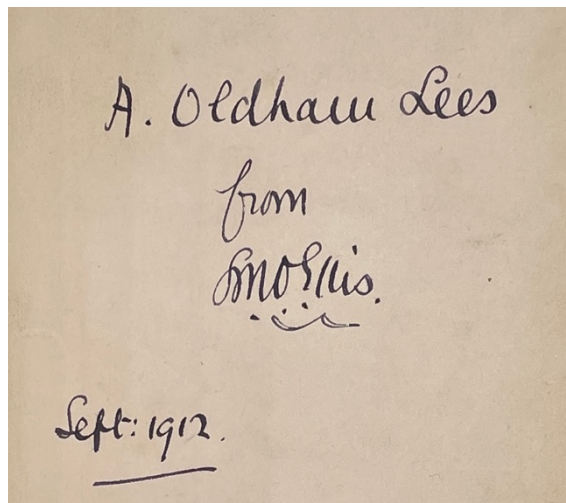 A. Oldham Lees
from
SMOEllis.
Sept: 1912.